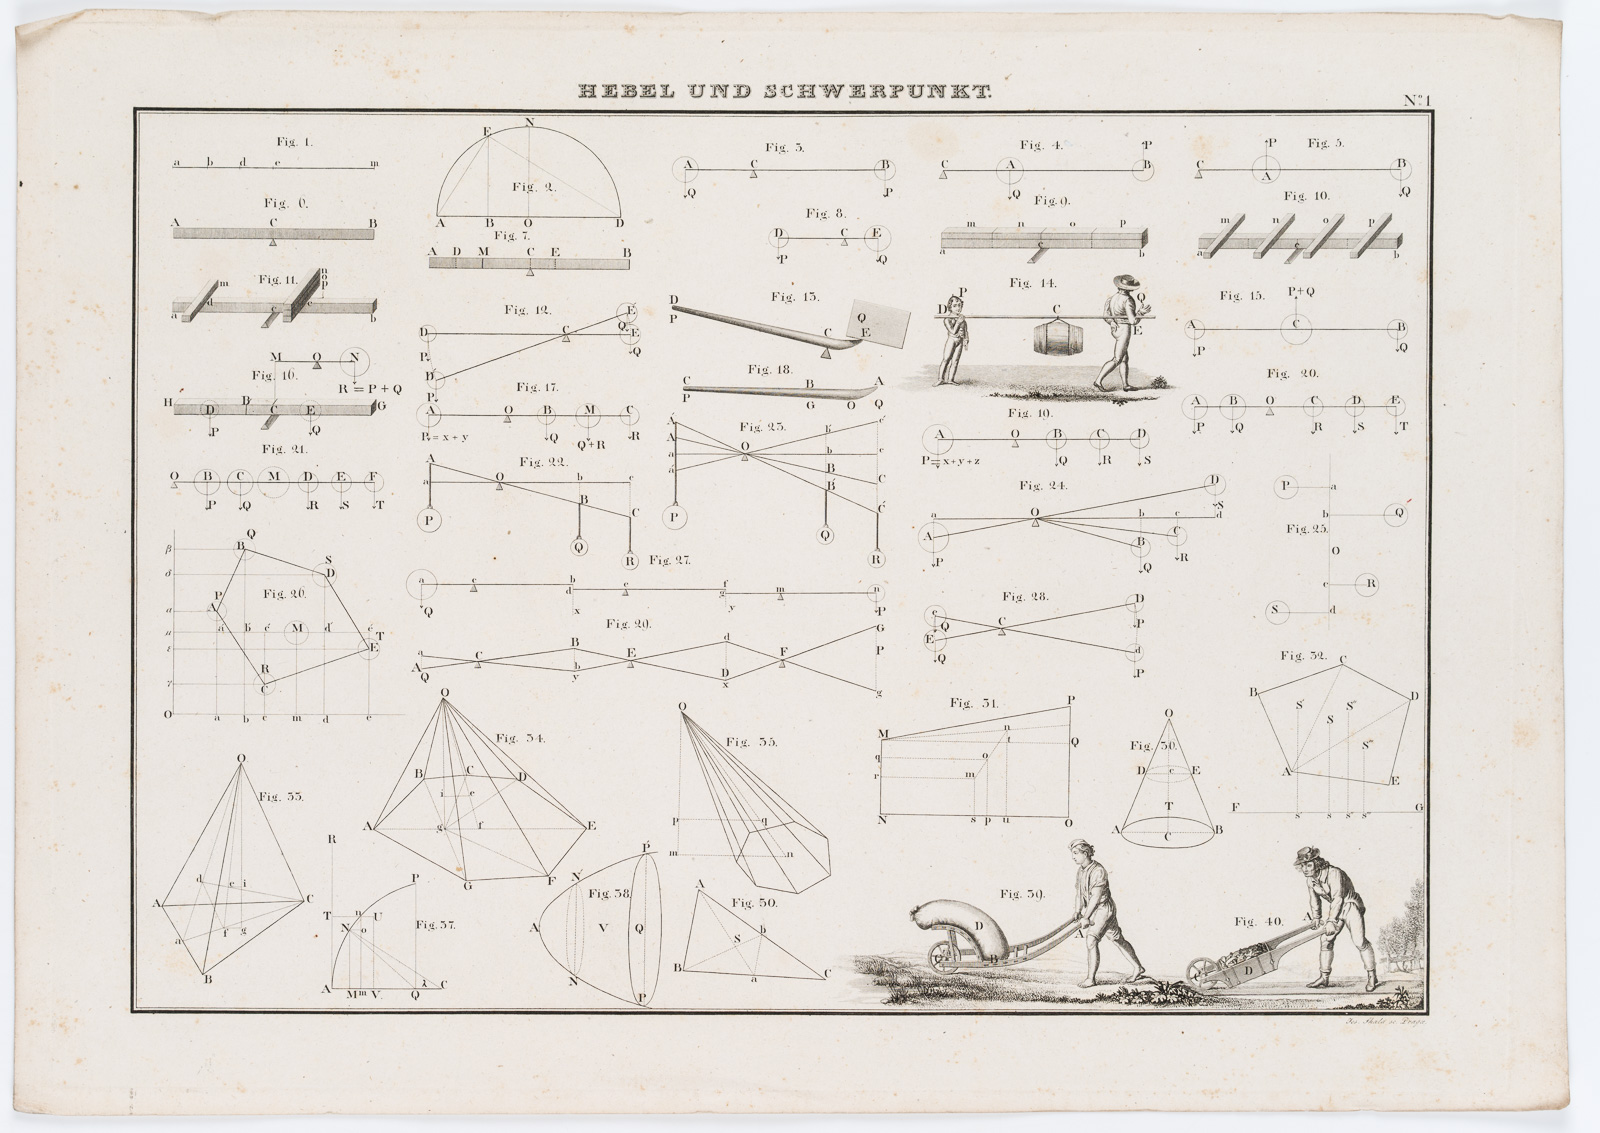 HEBEL UND SCHWERPUNKT.
Nº 1
Fig. 1.
a b d c m
Fig. 2.
E N
A B O D
Fig. 3.
A C B
Q P
Fig. 4.
C A B
P Q
Fig. 5.
C A B
P Q
Fig. 6.
A C B
Fig. 7.
A D M C E B
Fig. 8.
D C E
P Q
Fig. 9.
m n o p
a c b
Fig. 10.
m n o p
a c b
Fig. 11.
m n o p
d c e
a b
Fig. 12.
D C E E
P Q Q
D
P
Fig. 13.
D
P
C Q E
Fig. 14.
D P C Q E
Fig. 15.
P+Q
A C B
P Q
M O N
R = P + Q
Fig. 16.
H D B C E G
P Q
Fig. 17.
A O B M C
P = x + y Q Q+R R
Fig. 18.
C B A
G O Q
Fig. 19.
A O B C D
P = x+y+z Q R S
Fig. 20.
A B O C D E
P Q R S T
Fig. 21.
O B C M D E F
P Q R S T
Fig. 22.
A
a O b c
B C
P Q R
Fig. 23.
A c'
A O b'
a b c
a' B C
B' C'
P Q R
Fig. 24.
D
S
a O b c d
A B C
P Q R
Fig. 25.
P a
b Q
O
c R
S d
Fig. 26.
Q
β B S
δ D
P
α A
a' b' c' M d' e' T
μ
ε E
R
γ C
O a b c m d e
Fig. 27.
a c b e f m n
d g
Q x y P
Fig. 28.
c C D
Q P
E d
Q P
Fig. 29.
a C B E d F G
A b D P
Q y x g
Fig. 30.
O
D c E
T
A C B
Fig. 31.
P
M n
t Q
q o
r m
N s p u O
Fig. 32.
C
B D
S' S S'' S'''
A E
F G
s' s s'' s'''
Fig. 33.
O
d e i
A C
a f g
B
Fig. 34.
O
B C D
i e
A g f E
G F
Fig. 35.
O
p q
m n
Fig. 30.
A
S b
B a C
Fig. 37.
R
P
T n U
N o
A M m V Q λ C
Fig. 38.
P'
N'
A V Q
N
P
Fig. 39.
D
B A
Fig. 40.
A
D
Jos. Skala sc. Praga.